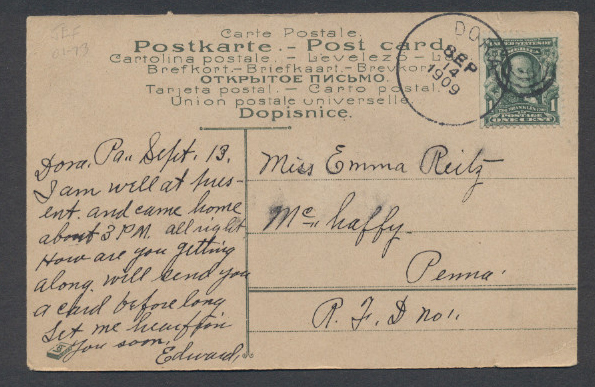 JEF
01-73
Carte Postale.
Postkarte.- Post card.
Cartolina postale. - Levelező-L
Brefkort.-Briefkaart.-Brevkort
ОТКРЫТОЕ ПИСЬМО.
Tarjeta postal. - Carto postal.
Union postale universelle.
Dopisnice.
DO
SEP
14
1909
POSTAGE
1 ONE CENT 1
Dora, Pa., Sept. 13.
I am well at pres-
ent. and came home
about 3 P.M. all right
How are you getting
along. will send you
a card before long
Let me hear from
you soon,
Edward.
Miss Emma Reitz
Mc Haffy
Penna.
R. F. D no 11